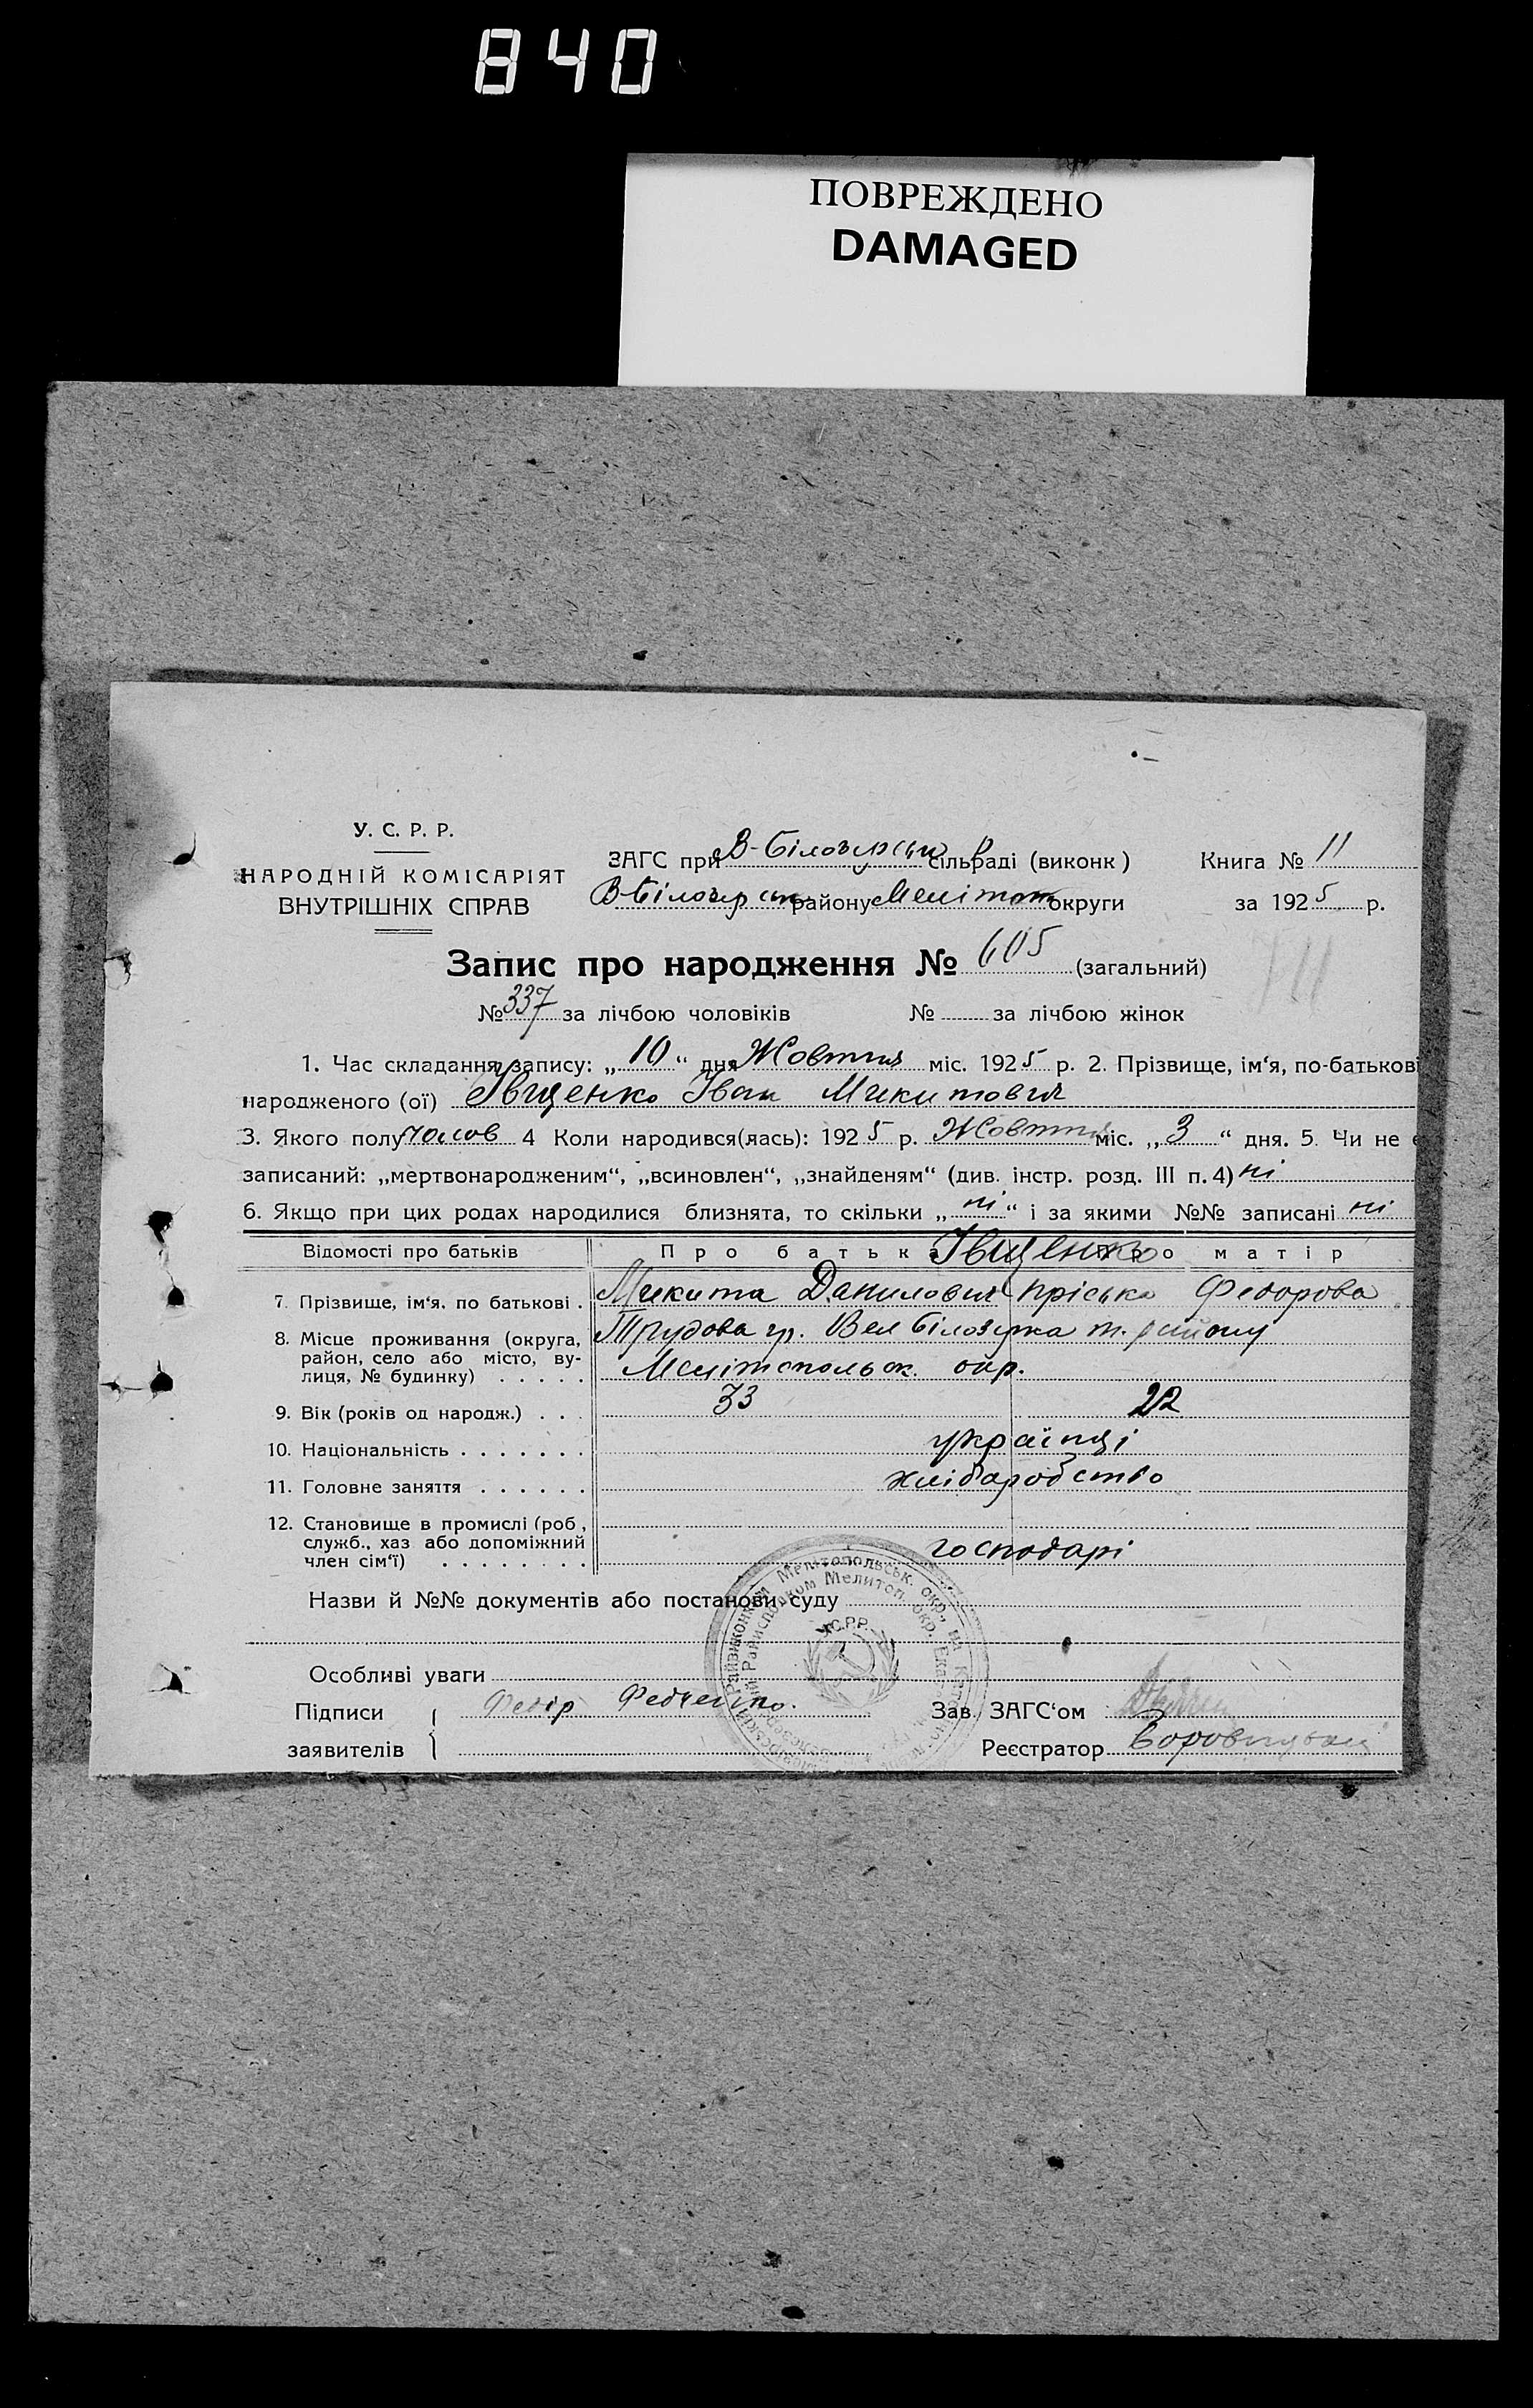 840
ПОВРЕЖДЕНО
DAMAGED
У. С. Р. Р.
НАРОДНІЙ КОМІСАРІЯТ
ВНУТРІШНІХ СПРАВ
ЗАГС при В-Білозерськ сільраді (виконк) Книга № 11
В-Білозерськ району Мелітоп округи за 1925 р.
Запис про народження № 605 (загальний)
№ 337 за лічбою чоловіків № за лічбою жінок
1. Час складання запису: „10“ дня Жовтня міс. 1925 р. 2. Прізвище, ім'я, по-батькові
народженого (ої) Іващенко Іван Микитович
3. Якого полу чолов 4 Коли народився(лась): 1925 р. Жовтня міс. „3“ дня. 5. Чи не є
записаний: „мертвонародженим“, „всиновлен“, „знайденям“ (див. інстр. розд. III п. 4) ні
6. Якщо при цих родах народилися близнята, то скільки „ні“ і за якими №№ записані ні
Відомості про батьків Про батька Іващенко Про матір
7. Прізвище, ім'я, по батькові . Микита Данилович Пріська Федорова
8. Місце проживання (округа, район, село або місто, вулиця, № будинку) . . . . . Трудова гр. Вел Білозерка т. району
Мелітопольск. окр.
9. Вік (років од народж.) . . . 33 22
10. Національність . . . . . . . українці
11. Головне заняття . . . . . . хліборобство
12. Становище в промислі (роб., служб., хаз або допоміжний член сім'ї) . . . . . . . . господарі
Назви й №№ документів або постанови суду
У.С.Р.Р.
Особливі уваги
Підписи Федір Федченко. Зав. ЗАГС'ом
заявителів Реєстратор